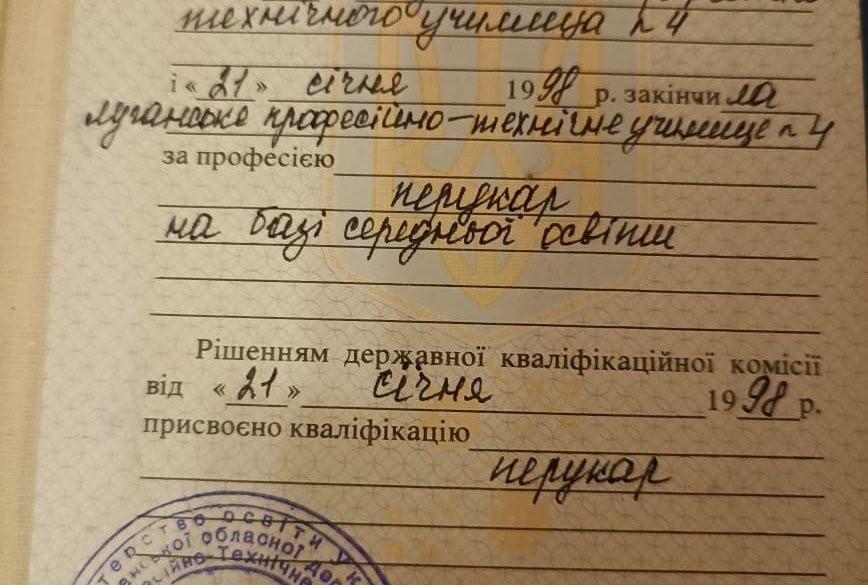 технічного училища n 4
і « 21 » січня 1998 р. закінчи ла
луганське професійно-технічне училище n 4
за професією
перукар
на базі середньої освіти
Рішенням державної кваліфікаційної комісії
від « 21 » січня 1998 р.
присвоєно кваліфікацію
перукар
терство освіти Ук
ської обласної
сійно-Технічне